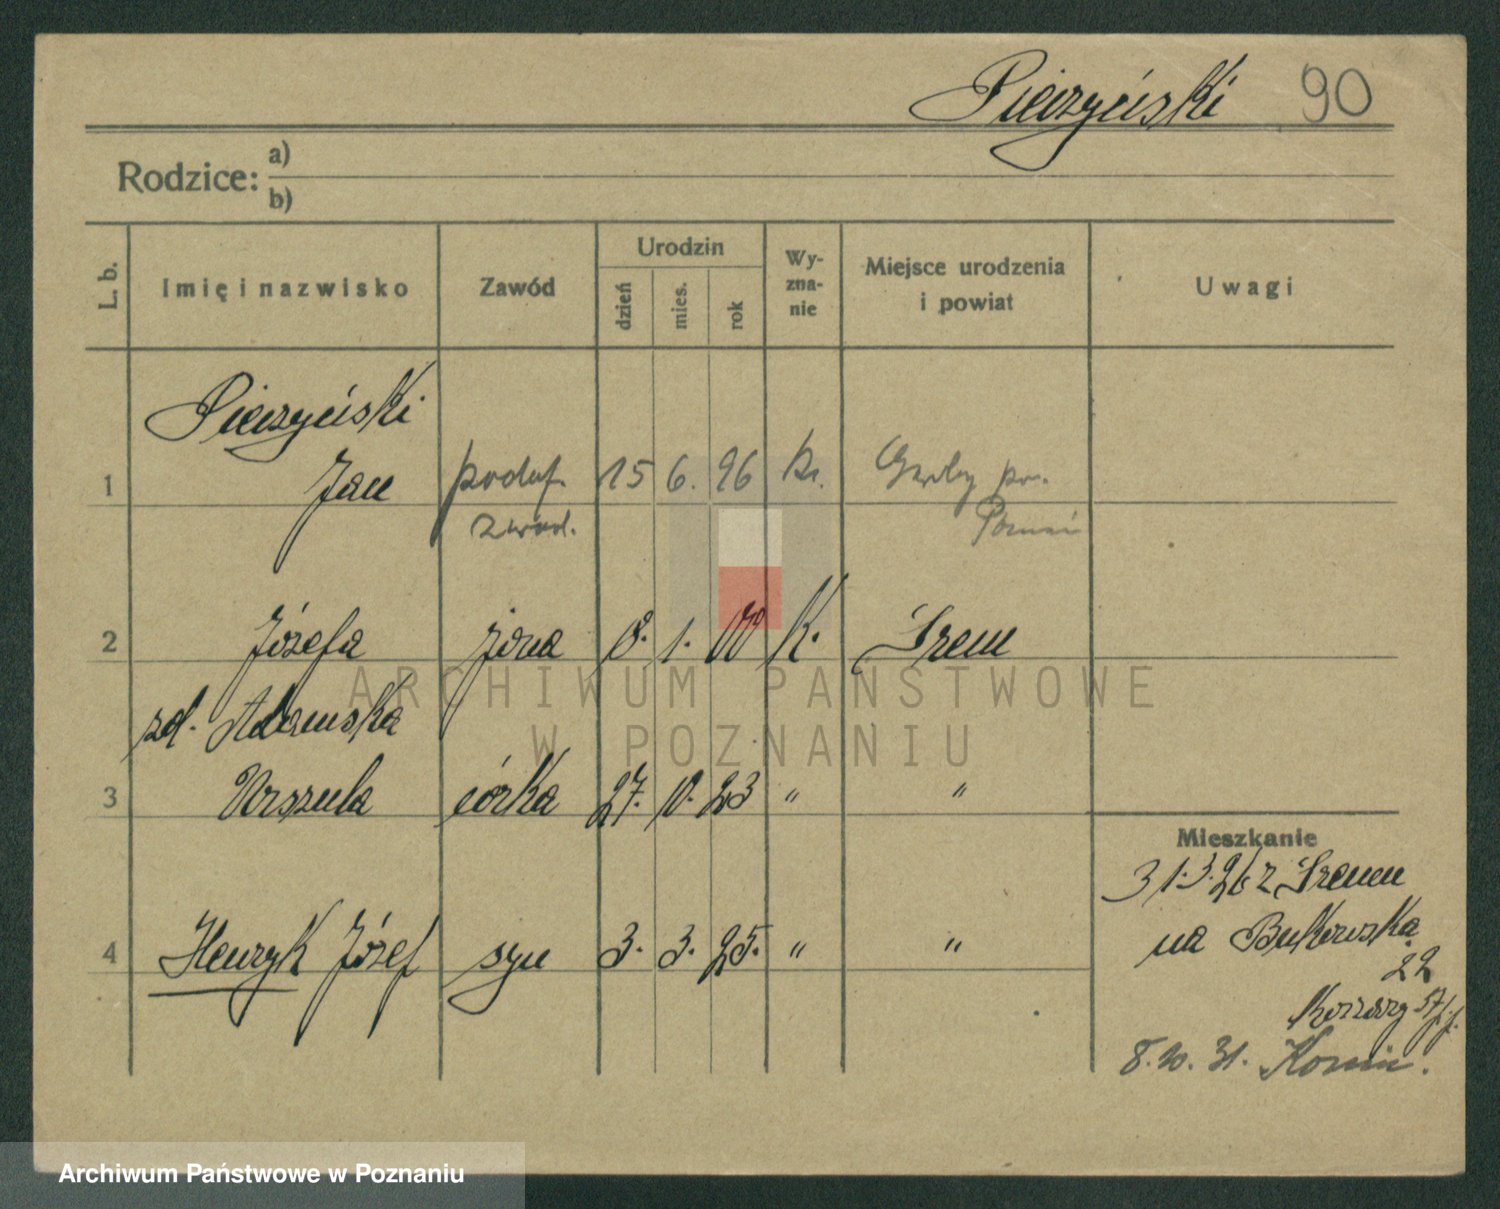 Pieczyński 90
Rodzice: a)
b)
L. b. Imię i nazwisko Zawód Urodzin dzień mies. rok Wy-zna-nie Miejsce urodzenia i powiat Uwagi
Pieczyński
1 Jan podof. 15 6. 96 kr.
Poznań
2 Józefa żona 8. 1. 00 K. Śrem
zd. Adamska
3 Urszula córka 27. 10. 23 " "
Mieszkanie
31.3.26 z Śremu
4 Henryk Józef syn 3. 3. 25. " "
na Bukowska
22
8.10.31.
ARCHIWUM PAŃSTWOWE
W POZNANIU
Archiwum Państwowe w Poznaniu